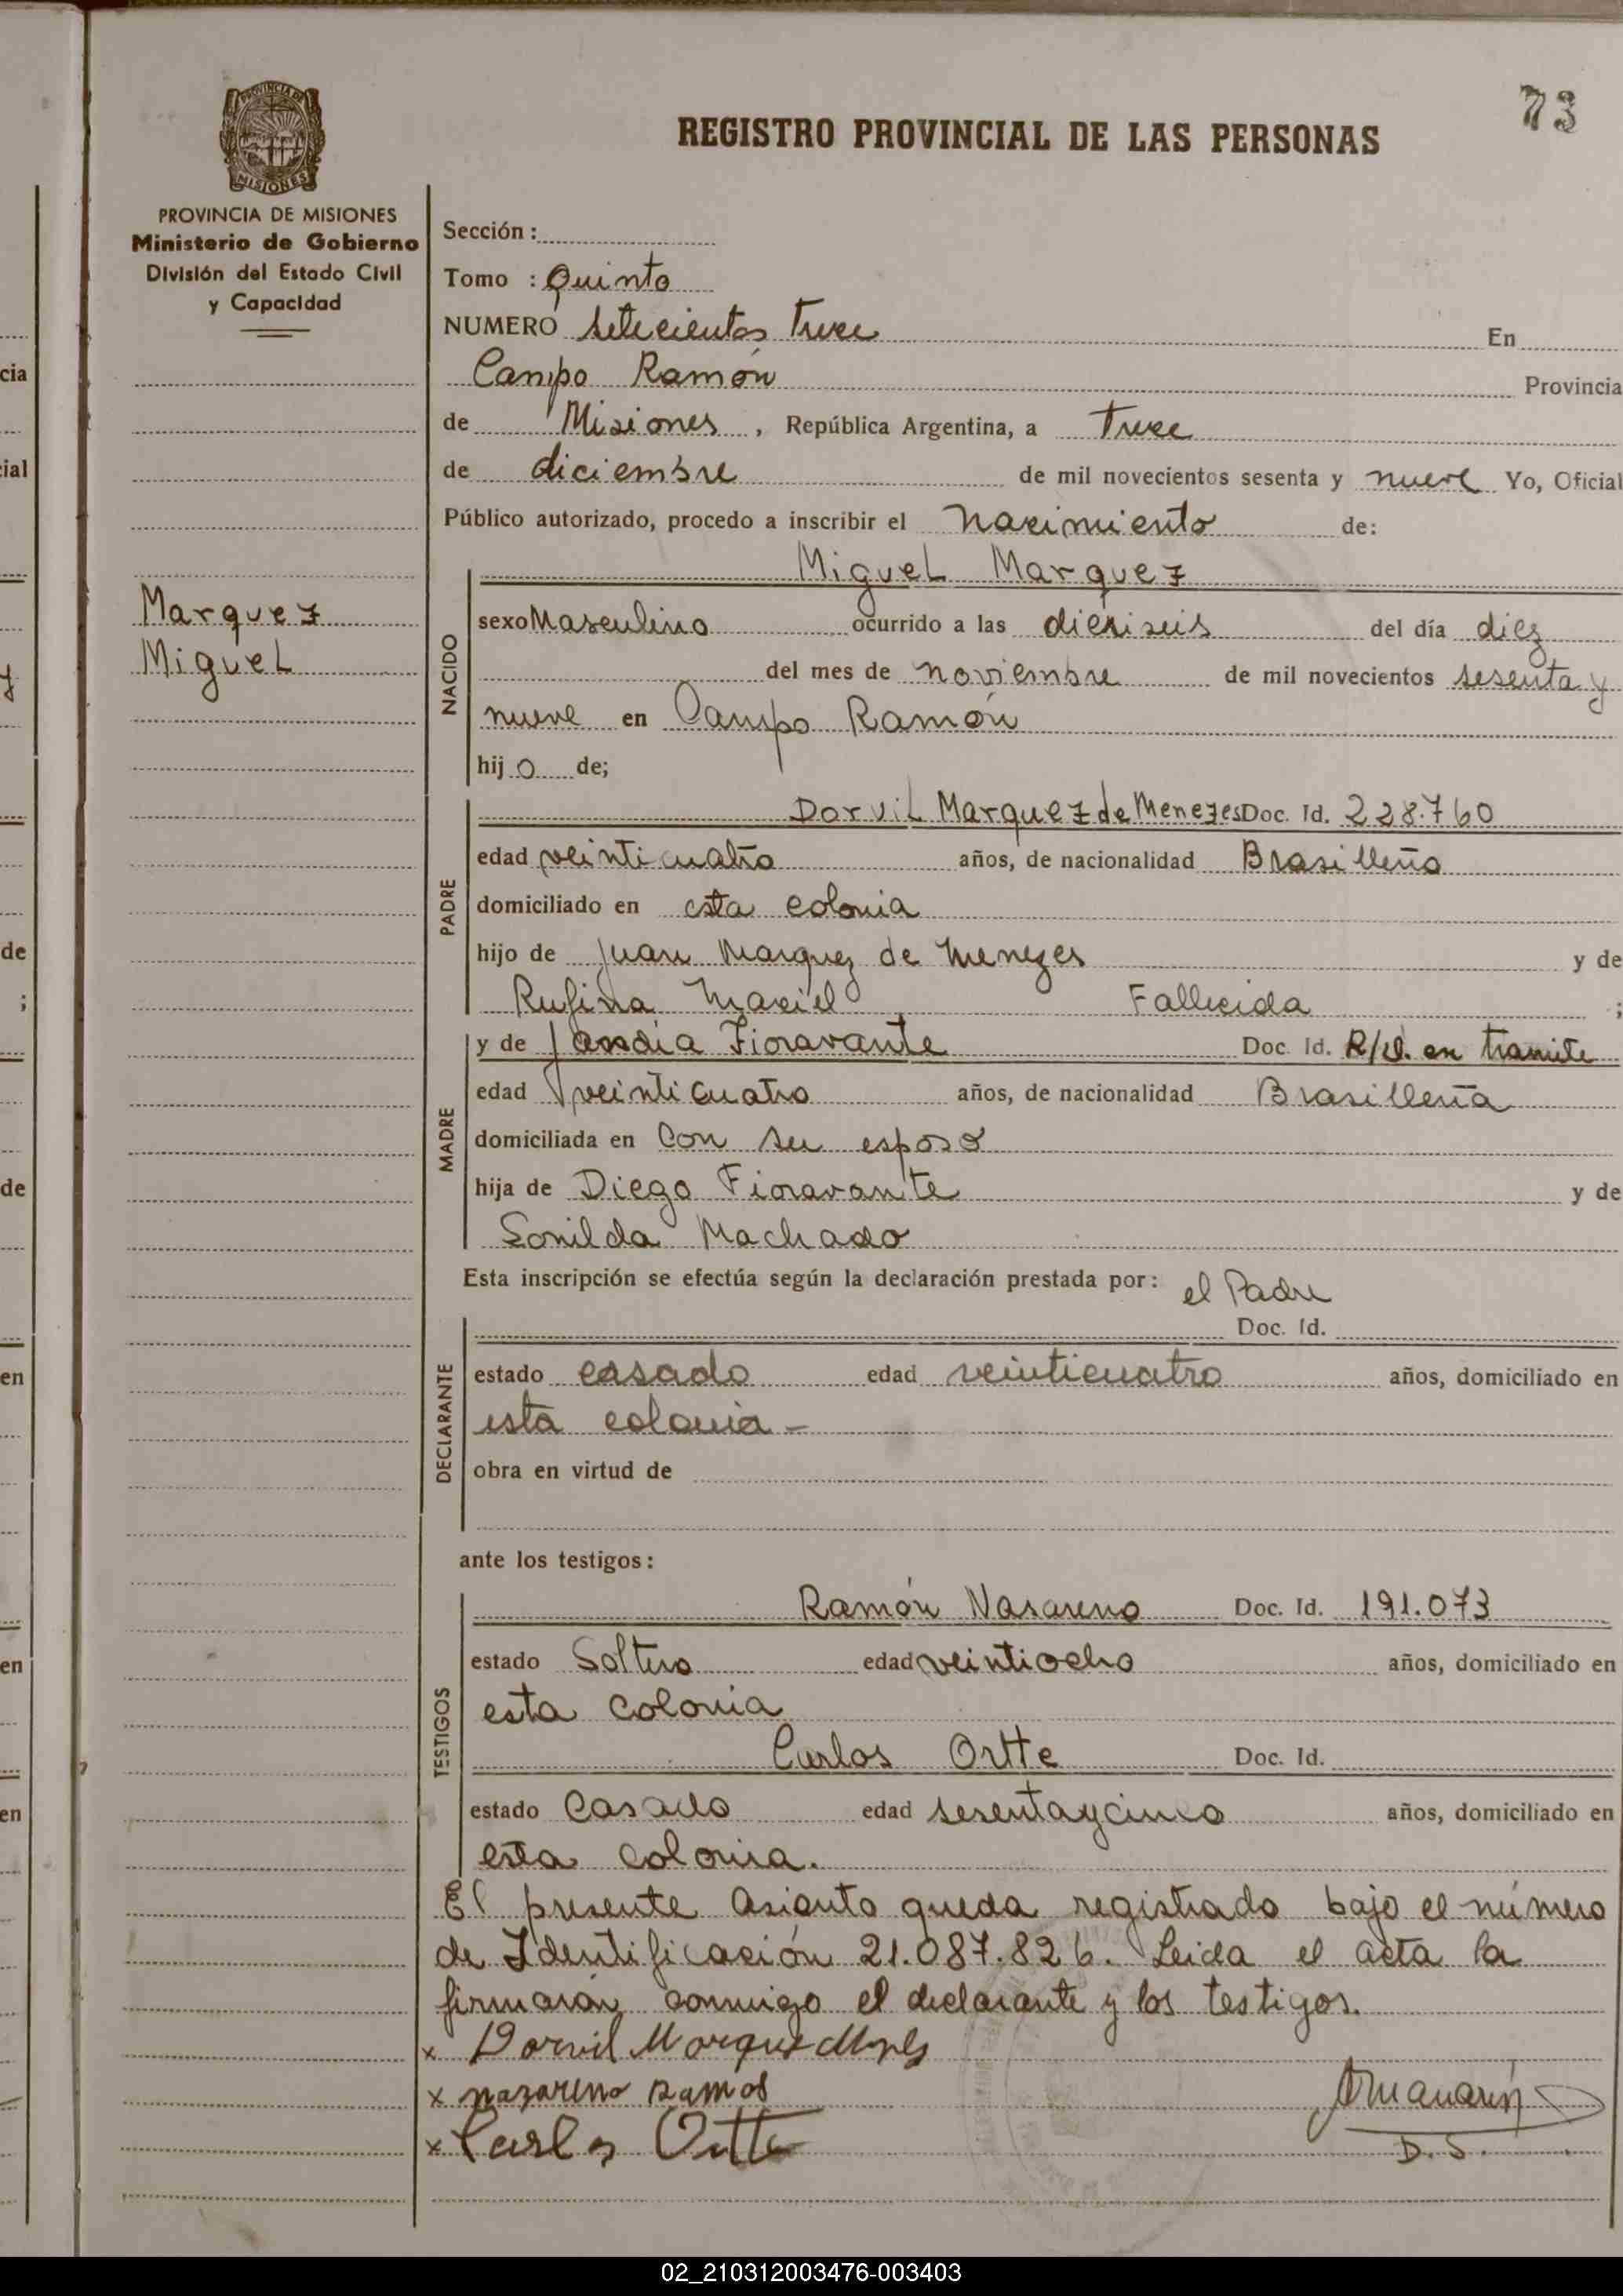 73
REGISTRO PROVINCIAL DE LAS PERSONAS
PROVINCIA DE MISIONES
MISIONES
PROVINCIA DE MISIONES
Ministerio de Gobierno
División del Estado Civil
y Capacidad
Marquez
Miguel
Sección:
Tomo : Quinto
NUMERO setecientos trece En
Campo Ramón Provincia
de Misiones, República Argentina, a trece
de diciembre de mil novecientos sesenta y nueve Yo, Oficial
Público autorizado, procedo a inscribir el nacimiento de:
NACIDO
Miguel Marquez
sexo Masculino ocurrido a las dieziseis del día diez
del mes de noviembre de mil novecientos sesenta y
nueve en Campo Ramón
hijo de;
PADRE
Dorvil Marquez de Menezes Doc. Id. 228.760
edad veinticuatro años, de nacionalidad Brasilleño
domiciliado en esta colonia
hijo de Juan Marquez de Menezes y de
Rufina Maciel Fallecida ;
MADRE
y de Jandia Fioravante Doc. Id. R/D. en tramite
edad veinticuatro años, de nacionalidad Brasilleña
domiciliada en con su esposo
hija de Diego Fioravante y de
Sonilda Machado
Esta inscripción se efectúa según la declaración prestada por: el Padre
DECLARANTE
Doc. Id.
estado casado edad veinticuatro años, domiciliado en
esta colonia -
obra en virtud de
ante los testigos:
TESTIGOS
Ramón Nasareno Doc. Id. 191.073
estado Soltero edad veintiocho años, domiciliado en
esta colonia
Carlos Ortte Doc. Id.
estado Casado edad sesentaycinco años, domiciliado en
esta colonia.
El presente Asiento queda registrado bajo el número
de Identificación 21.087.826. Leida el acta la
firmarán conmigo el declarante y los testigos.
x Dorvil Marques
x nazareno Ramos
x Carlos Ortte
D. S.
cia
cial
de
;
de
en
en
en
02_210312003476-003403